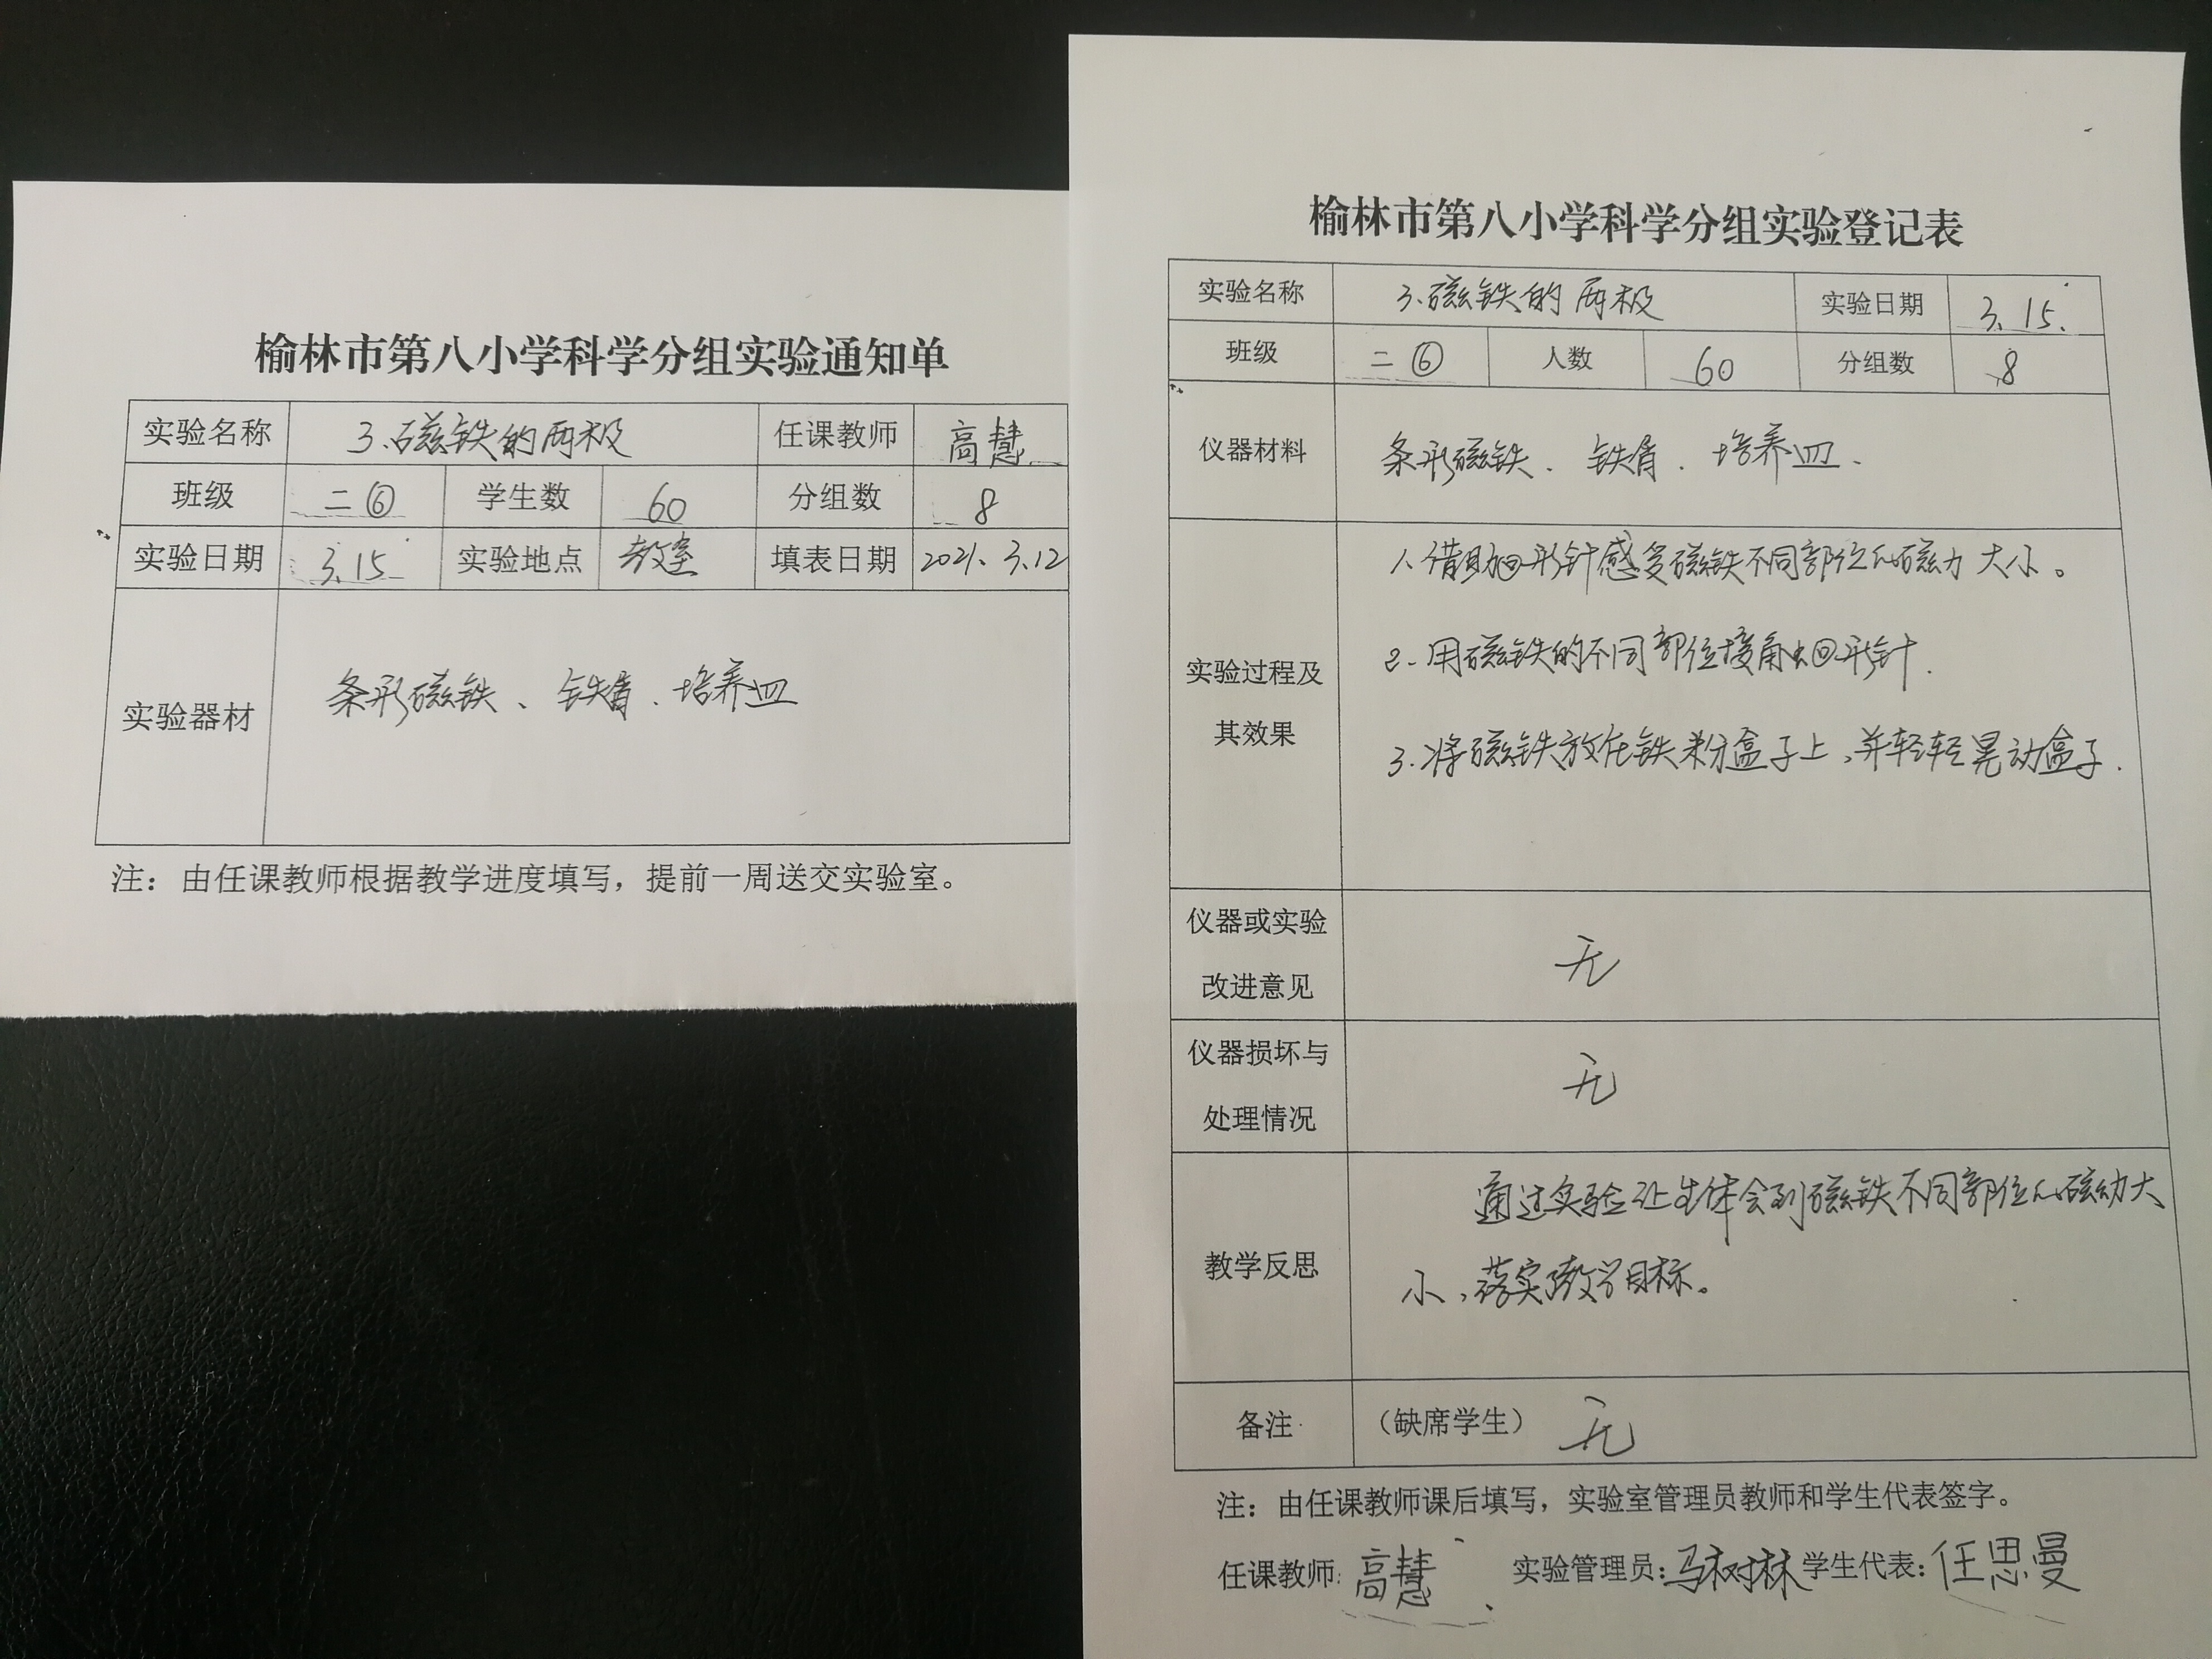 榆林市第八小学科学分组实验通知单
实验名称 3.磁铁的两极 任课教师 高慧
班级 二⑥ 学生数 60 分组数 8
实验日期 3.15 实验地点 教室 填表日期 2021.3.12
实验器材 条形磁铁、铁屑、培养皿
注：由任课教师根据教学进度填写，提前一周送交实验室。
榆林市第八小学科学分组实验登记表
实验名称 3.磁铁的两极 实验日期 3.15.
班级 二⑥ 人数 60 分组数 8
仪器材料 条形磁铁、铁屑、培养皿、
实验过程及
其效果
1、借助回形针感受磁铁不同部位的磁力大小。
2、用磁铁的不同部位接触回形针.
3.将磁铁放在铁粉盒子上,并轻轻晃动盒子.
仪器或实验
改进意见
无
仪器损坏与
处理情况
无
教学反思
通过实验让生体会到磁铁不同部位的磁力大
小,落实教学目标。
备注 （缺席学生） 无
注：由任课教师课后填写，实验室管理员教师和学生代表签字。
任课教师:高慧 实验管理员:马树林 学生代表:任思曼